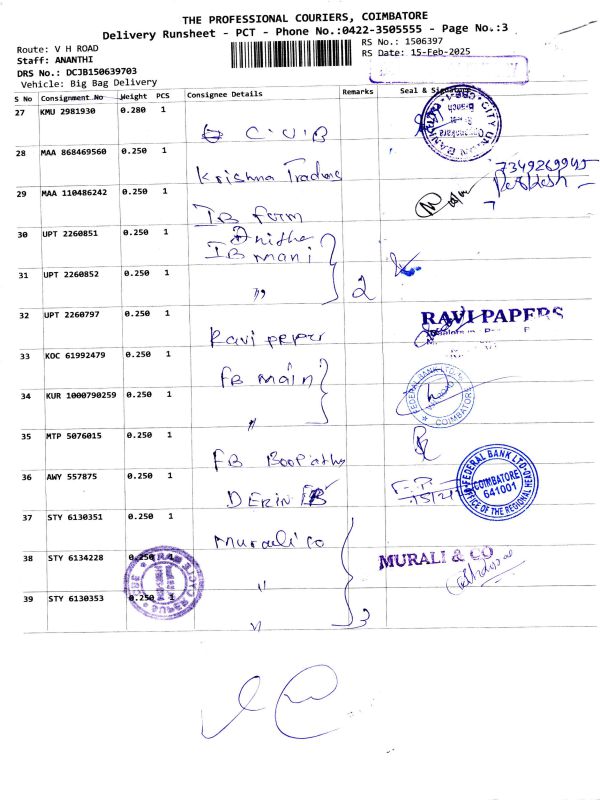 THE PROFESSIONAL COURIERS, COIMBATORE
Delivery Runsheet - PCT - Phone No.:0422-3505555 - Page No.:3
Route: V H ROAD
RS No.: 1506397
Staff: ANANTHI
RS Date: 15-Feb-2025
DRS No.: DCJB150639703
Vehicle: Big Bag Delivery
S No Consignment No Weight PCS Consignee Details Remarks Seal & Signature
27 KMU 2981930 0.280 1
C.U.B
CITY UNION BANK
Branch
28 MAA 868469560 0.250 1
Krishna Traders
7349269945
29 MAA 110486242 0.250 1
IB form
Anitha
30 UPT 2260851 0.250 1
IB mani
31 UPT 2260852 0.250 1
"
2
32 UPT 2260797 0.250 1
Ravi peper
RAVI PAPERS
33 KOC 61992479 0.250 1
FB main
34 KUR 1000790259 0.250 1
"
FEDERAL BANK LTD
COIMBATORE
35 MTP 5076015 0.250 1
FB Boopathy
36 AWY 557875 0.250 1
DERIN
FEDERAL BANK LTD
COIMBATORE
641001
OFFICE OF THE REGIONAL HEAD
37 STY 6130351 0.250 1
Murali co
38 STY 6134228 0.250 1
"
MURALI & CO
39 STY 6130353 0.250 1
"
3
SUPER CYCLE